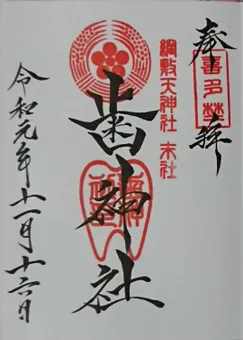 奉拝
喜多埜
綱敷天神社 末社
歯神社
令和元年十一月十六日